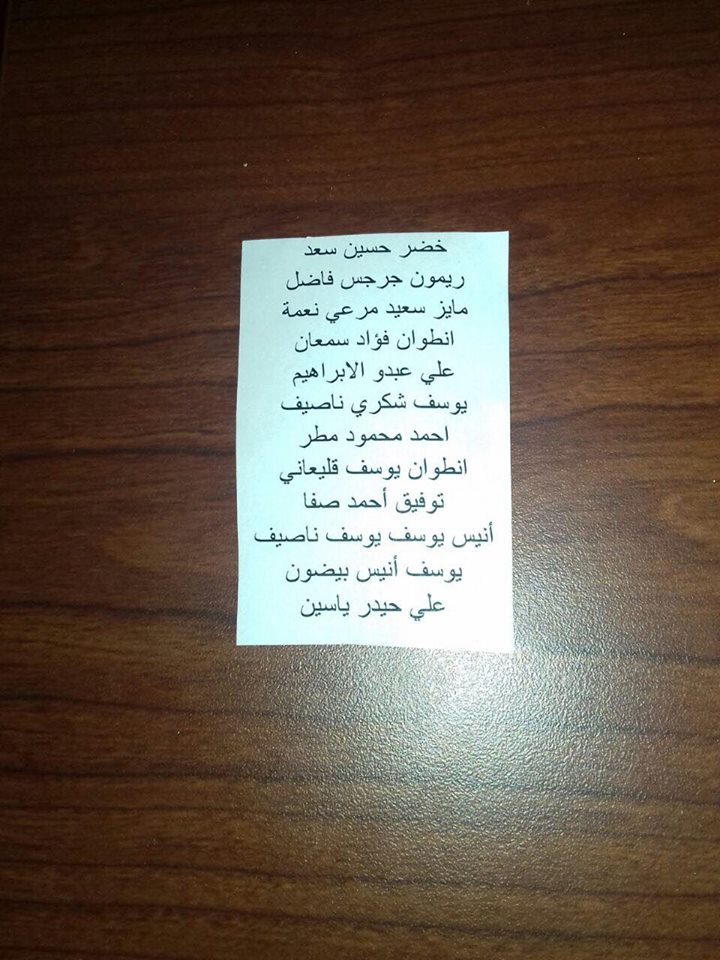 خضر حسين سعد
ريمون جرجس فاضل
مايز سعيد مرعي نعمة
انطوان فؤاد سمعان
علي عبدو الابراهيم
يوسف شكري ناصيف
احمد محمود مطر
انطوان يوسف قليعاني
توفيق أحمد صفا
أنيس يوسف يوسف ناصيف
يوسف أنيس بيضون
علي حيدر ياسين